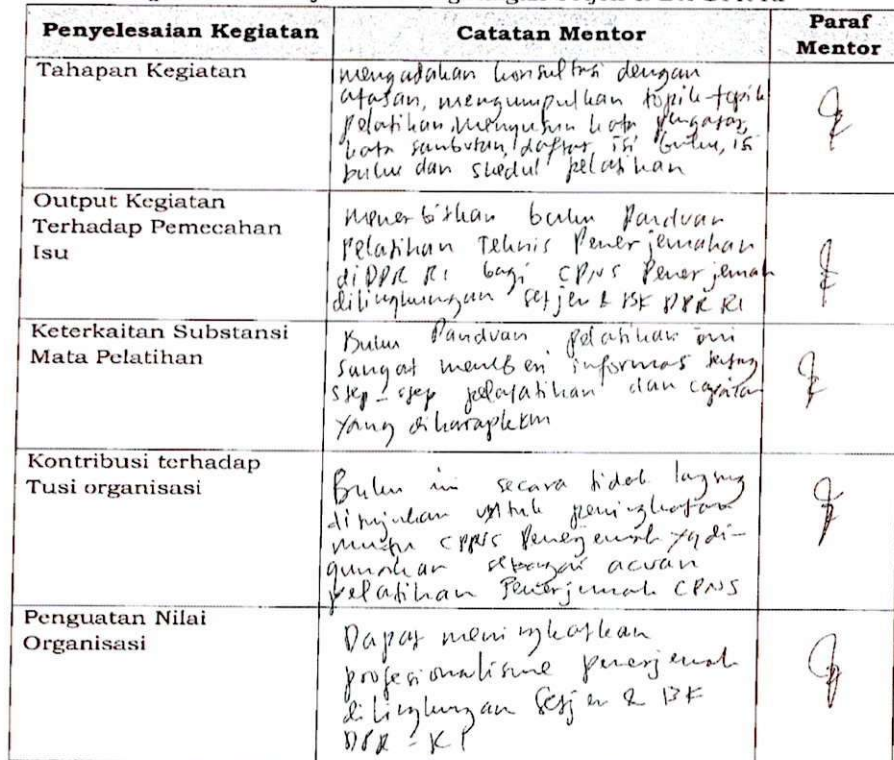 Penyelesaian Kegiatan
Catatan Mentor
Paraf
Mentor
Tahapan Kegiatan
mengadakan konsultasi dengan
atasan, mengumpulkan topik-topik
pelatihan, menyusun kata pengantar,
kata sambutan, daftar isi buku, isi
buku dan skedul pelatihan
Output Kegiatan
Terhadap Pemecahan
Isu
menerbitkan buku Panduan
Pelatihan Teknis Penerjemahan
di DPR RI bagi CPNS Penerjemah
dilingkungan Setjen & BK DPR RI
Keterkaitan Substansi
Mata Pelatihan
Buku Panduan pelatihan ini
sangat memberi informasi tentang
step-step pelatihan dan capaian
yang diharapkan
Kontribusi terhadap
Tusi organisasi
Buku ini secara tidak langsung
ditujukan untuk peningkatan
mutu CPNS Penerjemah yg di-
gunakan sebagai acuan
pelatihan Penerjemah CPNS
Penguatan Nilai
Organisasi
Dapat meningkatkan
profesionalisme penerjemah
dilingkungan Setjen & BK
DPR-RI